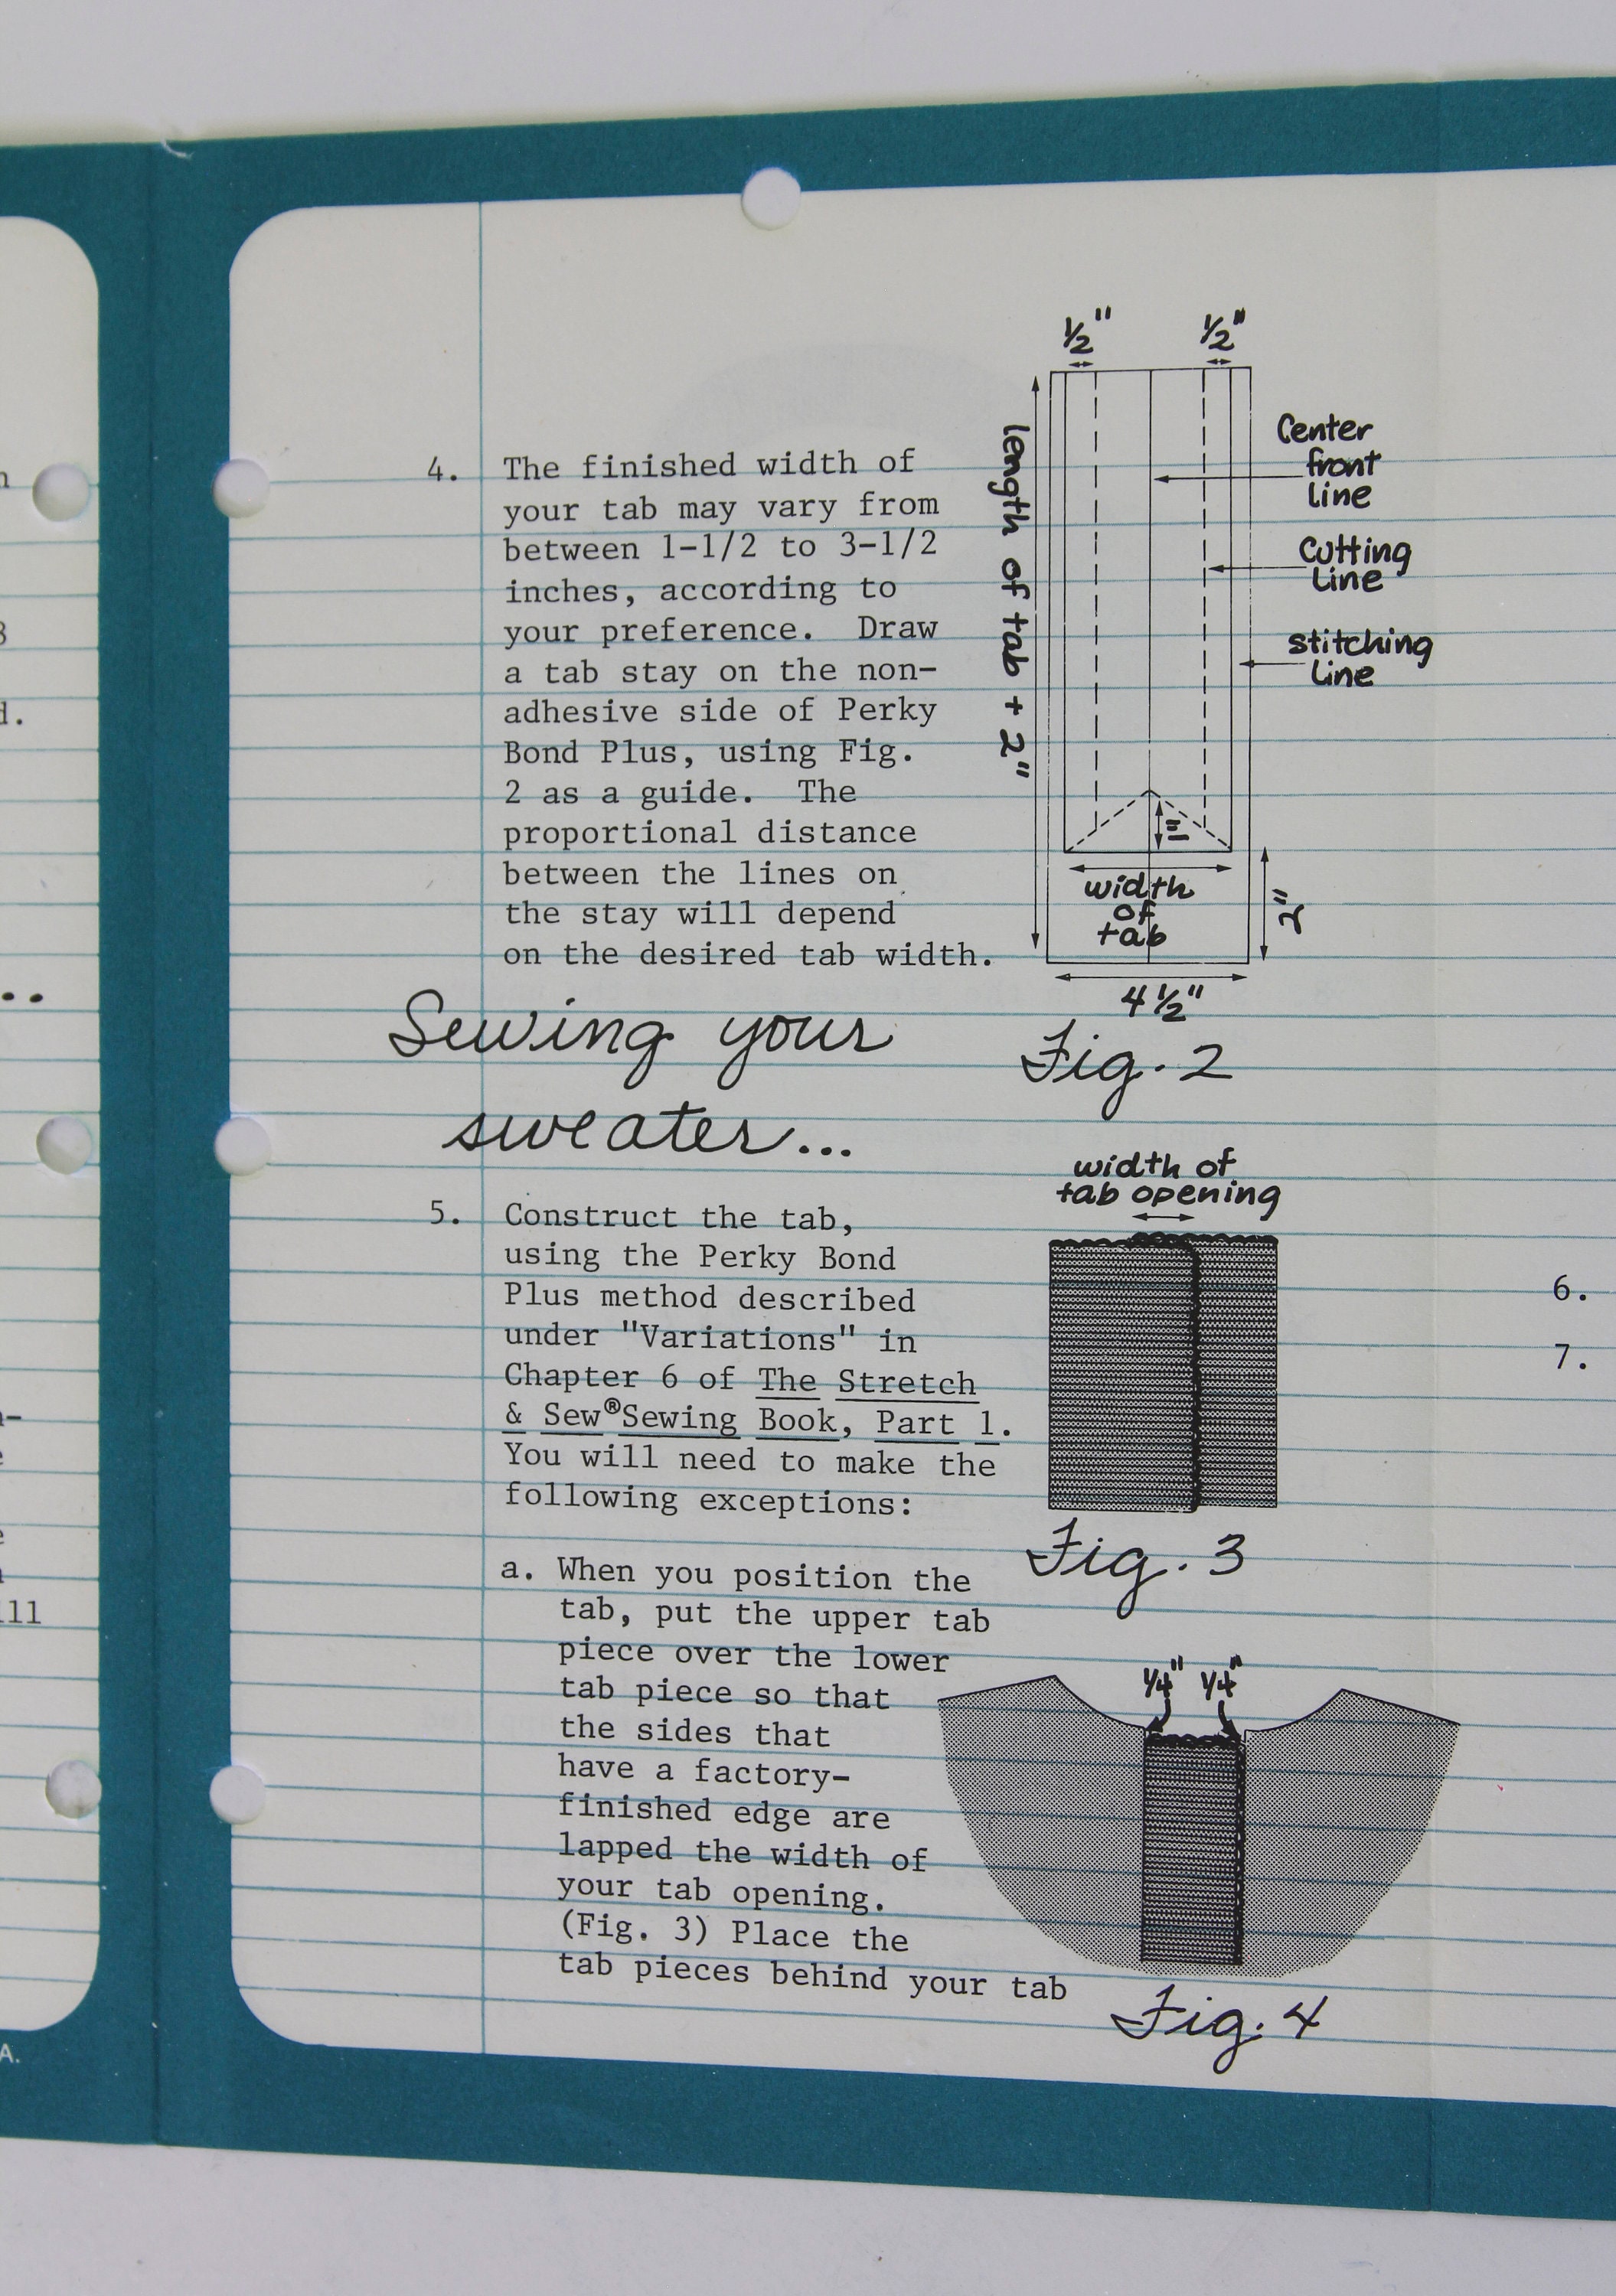 4. The finished width of
your tab may vary from
between 1-1/2 to 3-1/2
inches, according to
your preference. Draw
a tab stay on the non-
adhesive side of Perky
Bond Plus, using Fig.
2 as a guide. The
proportional distance
between the lines on
the stay will depend
on the desired tab width.
1/2" 1/2"
length of tab + 2"
Center
front
line
Cutting
Line
stitching
Line
1"
width
of
tab
2"
4 1/2"
Fig. 2
Sewing your
sweater...
5. Construct the tab,
using the Perky Bond
Plus method described
under "Variations" in
Chapter 6 of The Stretch
& Sew® Sewing Book, Part 1.
You will need to make the
following exceptions:
width of
tab opening
Fig. 3
a. When you position the
tab, put the upper tab
piece over the lower
tab piece so that
the sides that
have a factory-
finished edge are
lapped the width of
your tab opening.
(Fig. 3) Place the
tab pieces behind your tab
1/4" 1/4"
Fig. 4
6.
7.
d.
...
A.